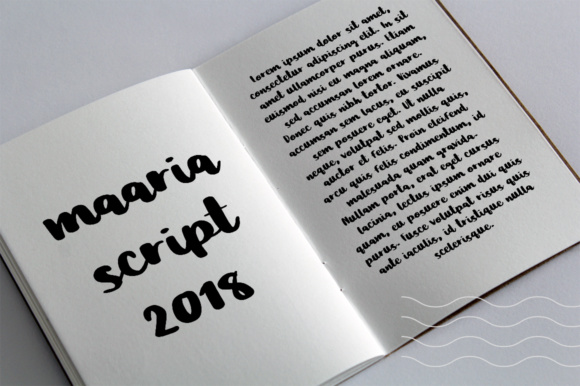 maaria
script
2018
Lorem ipsum dolor sit amet,
consectetur adipiscing elit. In sit
amet ullamcorper purus. Etiam
euismod nisi eu magna aliquam,
sed accumsan lorem ornare.
Donec quis nibh tortor. Vivamus
accumsan sem lacus, eu suscipit
sem posuere eget. Ut nulla
neque, volutpat sed mollis quis,
auctor et felis. Proin eleifend
arcu quis felis condimentum, id
malesuada quam gravida.
Nullam porta, erat eget cursus
lacinia, lectus ipsum ornare
quam, eu posuere enim dui quis
purus. Fusce volutpat risus quis
ante iaculis, id tristique nulla
scelerisque.